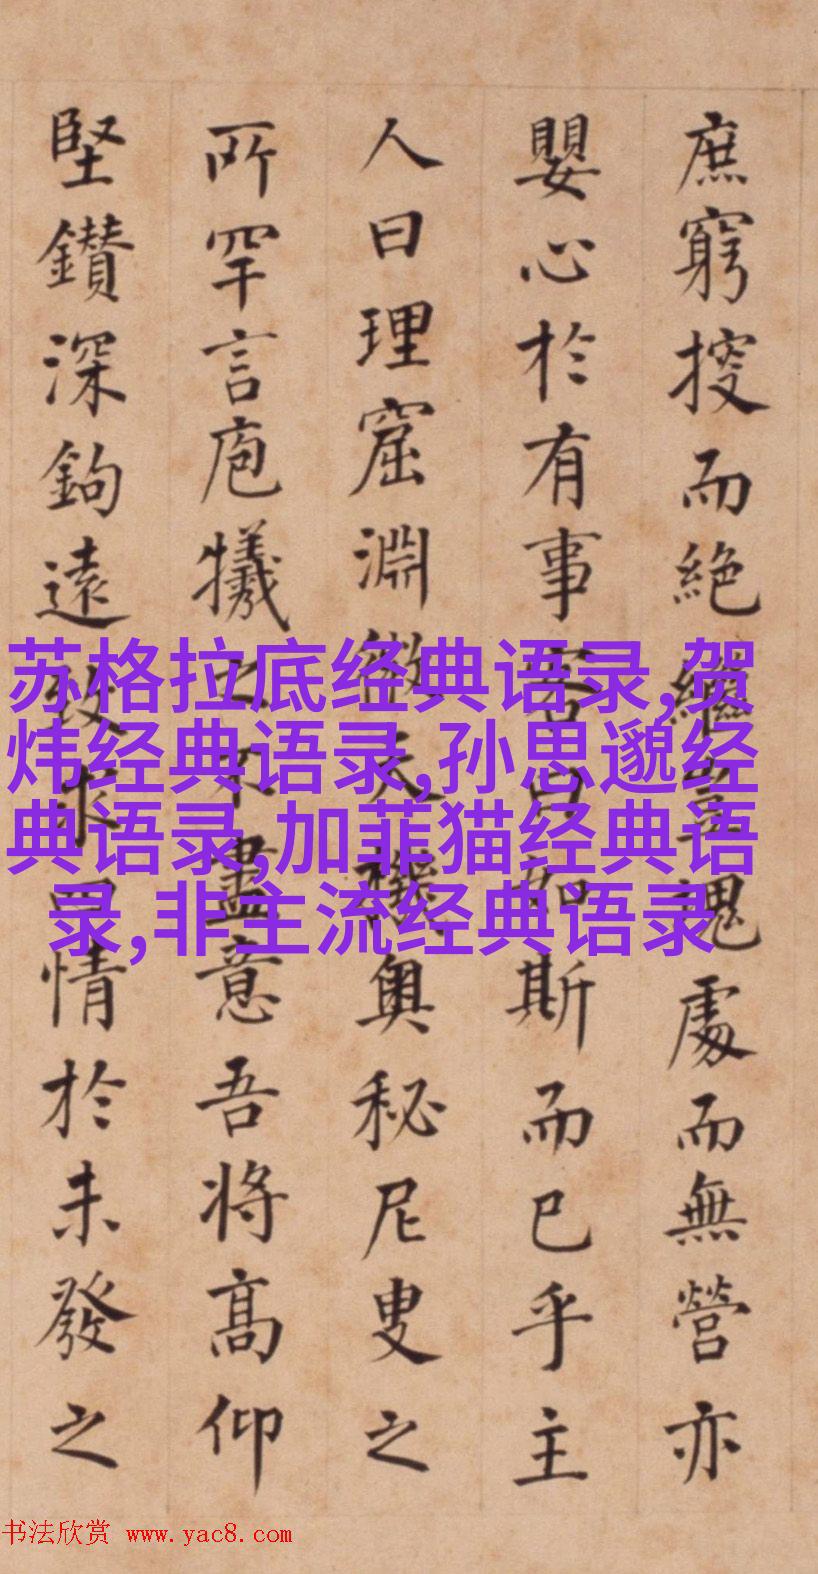 庶窮搜而絕繼塗瑰處而無營亦
嬰心於有事客曰如斯而已乎主
人曰理窟淵微天機奧秘尼叟之
所罕言庖犧之不盡意吾將高仰
堅鑽深鉤遠致求四情於未發之
苏格拉底经典语录,贺
炜经典语录,孙思邈经
典语录,加菲猫经典语
录,非主流经典语录
书法欣赏 www.yac8.com